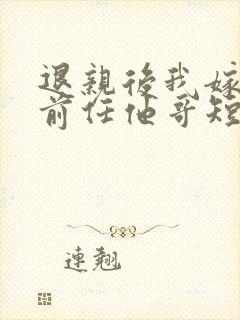 退親後我嫁
前任他哥短
連翹